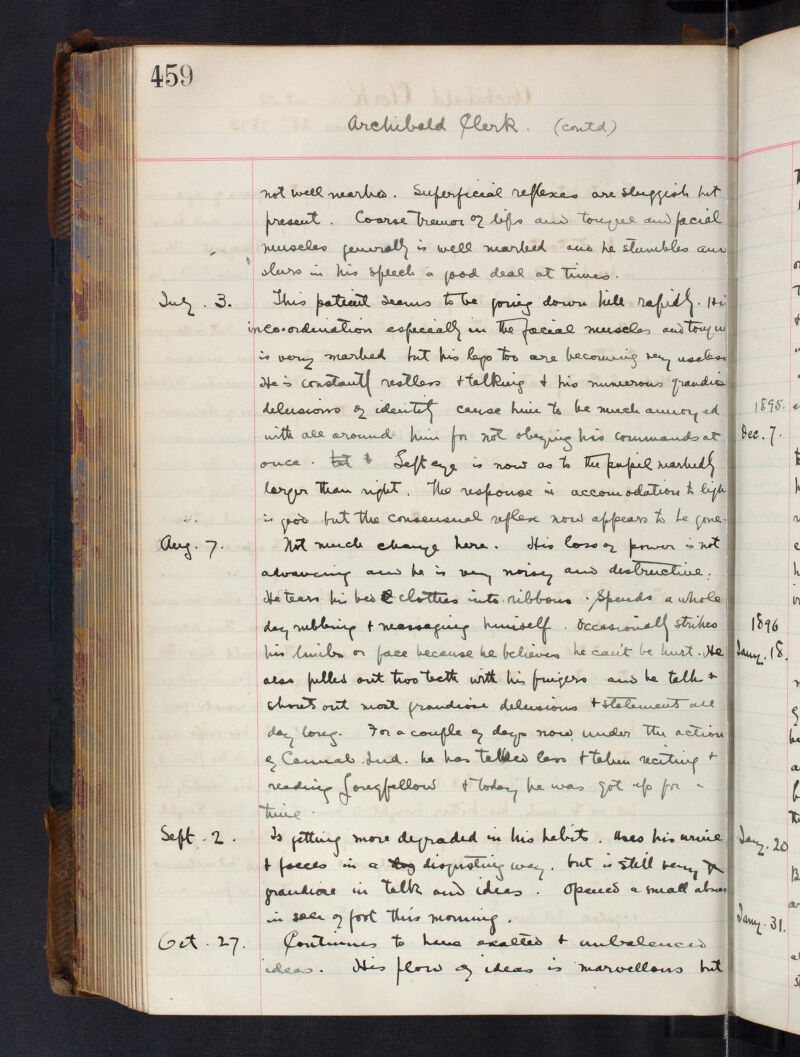 459
Archibald Clerk. (contd)
not well marked. Superficial reflexes are sluggish but
present. Coarse tremor of lips and tongue and facial
muscles generally is well marked and he stumbles and
slurs in his speech a good deal at times.
July. 3. This patient seems to be going down hill rapidly. His
inco-ordination especially in the facial muscles and tongue
is very marked but his legs too are becoming very useless
He is constantly restless & talking & his numerous grandiose
delusions of identity cause him to be much annoyed
with all around him for not obeying his commands at
once. Left eye is now as to the pupil markedly
larger than right. The response in accomodation to light
is good but the consensual reflex now appears to be gone.
Aug. 7. Not much change here. His loss of power is not
advancing and he is very noisy and destructive.
He tears his bed clothes into ribbons. Spends a whole
day rubbing & massaging himself. Occasionally strikes
his limbs or face because he believes he can't be hurt. He
also pulled out two teeth with his fingers and he talks &
shouts out most grandiose delusions & statements all
day long. For a couple of days now under the action
of Cannab. Ind. he has talked less & taken reciting &
reading Longfellow & today he was got up for a
time.
Sept. 2. Is getting more degraded in his habits. Uses his urine
& faeces in a disgusting way. but is still very
grandiose in talk and ideas. Opened a small abscess
in sole of foot this morning.
Oct. 27. Continues to have exalted & unbalanced
ideas. His flow of ideas is marvellous but
1895.
Dec. 7.
1896
Jany. 18.
Jany. 20
Jany. 31.